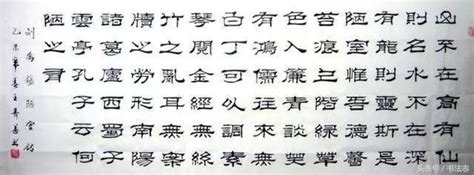 山不在高有仙
則名水不在深
有龍則靈斯是
陋室惟吾德馨
苔痕上階綠草
色入簾青談笑
有鴻儒往來無
白丁可以調素
琴閱金經無絲
竹之亂耳無案
牘之勞形南陽
諸葛廬西蜀子
雲亭孔子云何
陋之有
劉禹錫陋室銘
乙未年
头条号